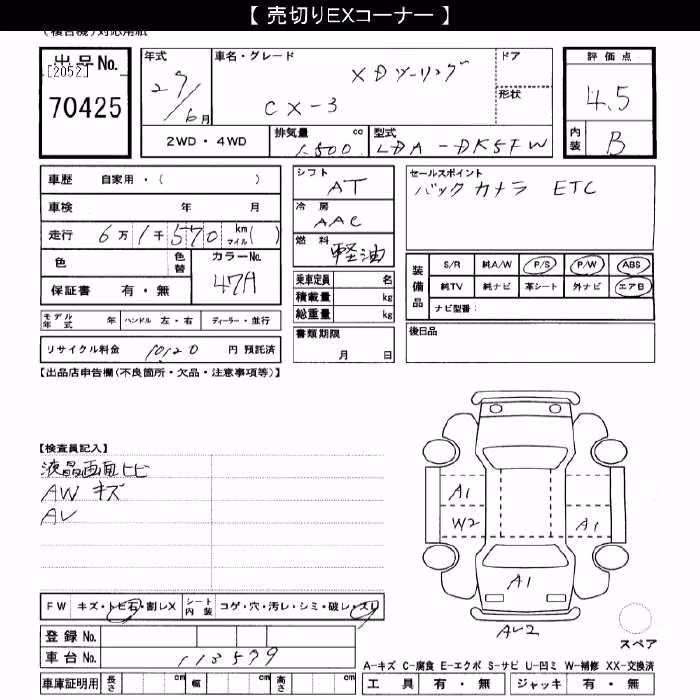 【 売切りEXコーナー 】
出品No.
[2052]
70425
年式
27/6月
車名・グレード
XDツーリング
CX-3
ドア
形状
評価点
4.5
内装
B
2WD・4WD
排気量
1500
cc
型式
LDA-DK5FW
車歴 自家用・( )
車検 年 月
走行 6万1千570km マイル( )
色
色替
カラーNo.
47A
保証書 有・無
モデル年式 年 ハンドル 左・右 ディーラー・並行
リサイクル料金 10120 円 預託済
シフト
AT
冷房
AAC
燃料
軽油
乗車定員 名
積載量 kg
総重量 kg
書類期限
月 日
セールスポイント
バックカメラ ETC
装備品
S/R 純A/W P/S P/W ABS
純TV 純ナビ 革シート 外ナビ エアB
ナビ型番:
後日品
【出品店申告欄(不良箇所・欠品・注意事項等)】
【検査員記入】
液晶画面ヒビ
AW キズ
AU
A1
W2
A1
A1
AU2
スペア
FW キズ・トビ石・割レX シート内装 コゲ・穴・汚レ・シミ・破レ・スレ
登録 No.
車台 No. 113579
車庫証明用 長さ cm 幅 cm 高さ cm
A-キズ C-腐食 E-エクボ S-サビ U-凹ミ W-補修 XX-交換済
工具 有・無 ジャッキ 有・無